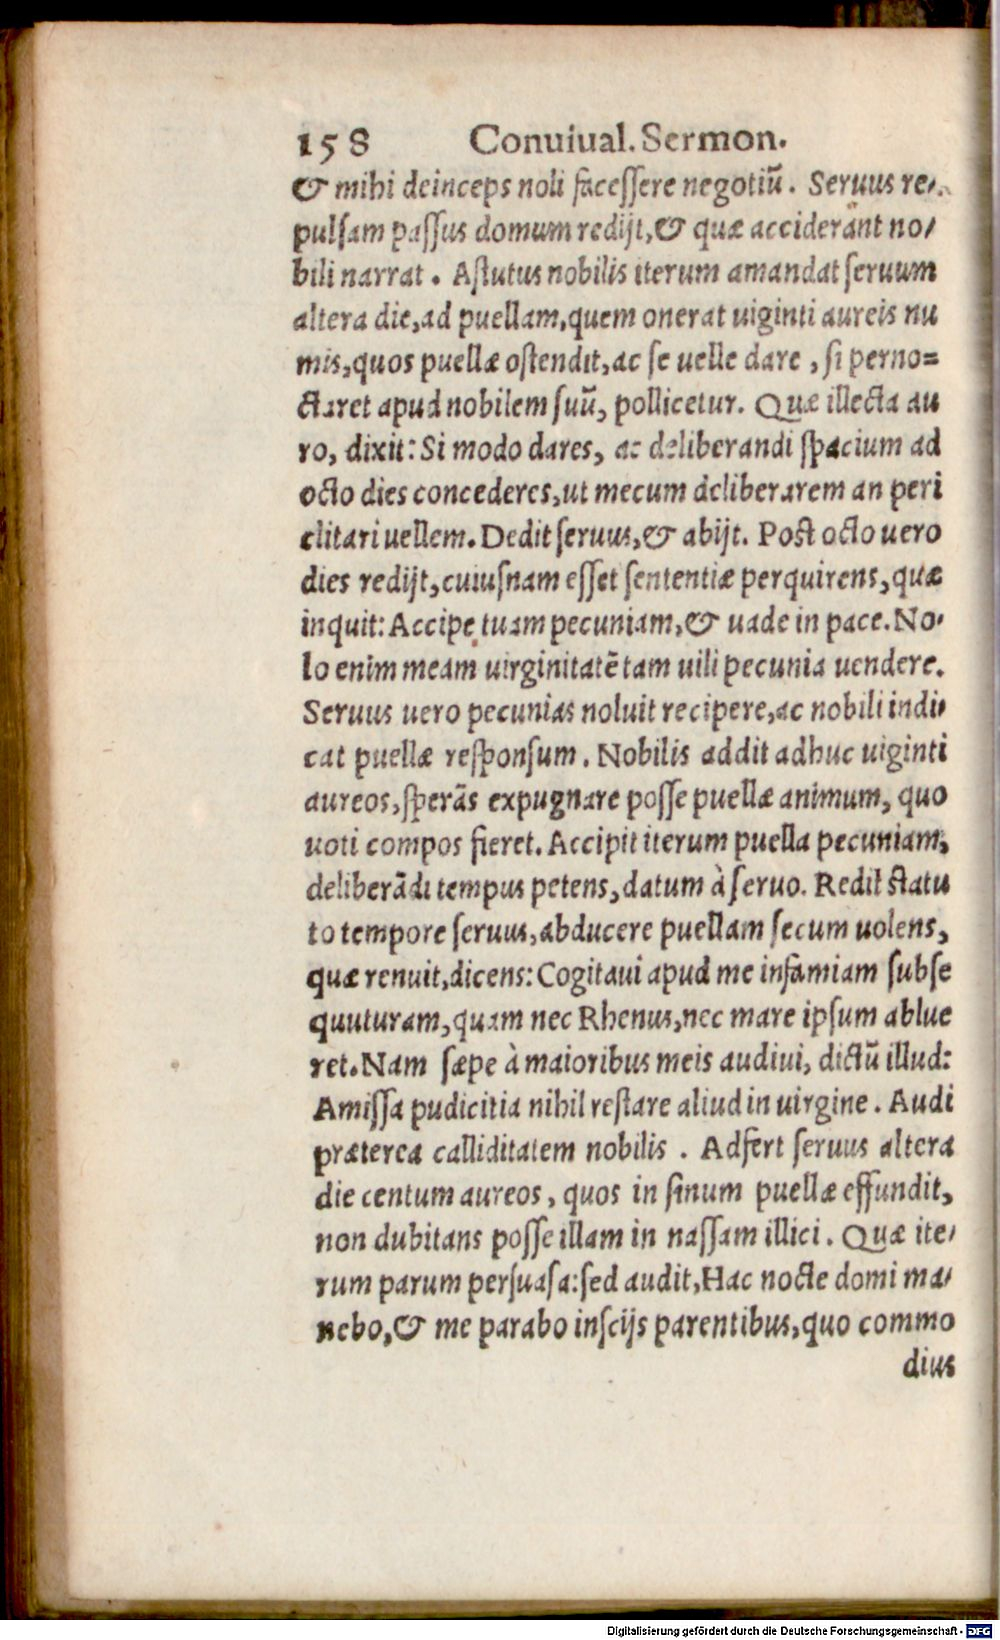 158 Conuiual. Sermon.
& mihi deinceps noli facessere negotiũ. Seruus re-
pulsam passus domum redijt, & quæ acciderant no-
bili narrat. Astutus nobilis iterum amandat seruum
altera die, ad puellam, quem onerat uiginti aureis nu
mis, quos puellæ ostendit, ac se uelle dare, si perno=
ctaret apud nobilem suũ, pollicetur. Quæ illecta au
ro, dixit: Si modo dares, ac deliberandi spacium ad
octo dies concederes, ut mecum deliberarem an peri
clitari uellem. Dedit seruus, & abijt. Post octo uero
dies redijt, cuiusnam esset sententiæ perquirens, quæ
inquit: Accipe tuam pecuniam, & uade in pace. No-
lo enim meam uirginitatẽ tam uili pecunia uendere.
Seruus uero pecunias noluit recipere, ac nobili indi-
cat puellæ responsum. Nobilis addit adhuc uiginti
aureos, sperãs expugnare posse puellæ animum, quo
uoti compos fieret. Accipit iterum puella pecuniam,
deliberãdi tempus petens, datum à seruo. Redit statu
to tempore seruus, abducere puellam secum uolens,
quæ renuit, dicens: Cogitaui apud me infamiam subse
quuturam, quam nec Rhenus, nec mare ipsum ablue
ret. Nam sæpe à maioribus meis audiui, dictũ illud:
Amissa pudicitia nihil restare aliud in uirgine. Audi
præterea calliditatem nobilis. Adfert seruus altera
die centum aureos, quos in sinum puellæ effundit,
non dubitans posse illam in nassam illici. Quæ ite-
rum parum persuasa: sed audit, Hac nocte domi ma-
nebo, & me parabo inscijs parentibus, quo commo
dius
Digitalisierung gefördert durch die Deutsche Forschungsgemeinschaft - DFG